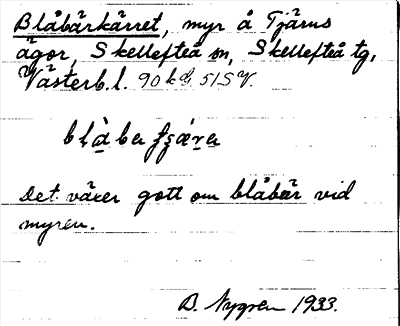 Blåbärkärret, myr å Tjärns
ägor, Skellefteå sn, Skellefteå tg,
Västerb. l. 90 k 51 S V.
Det växer gott om blåbär vid
myren.
B. Nygren 1933.